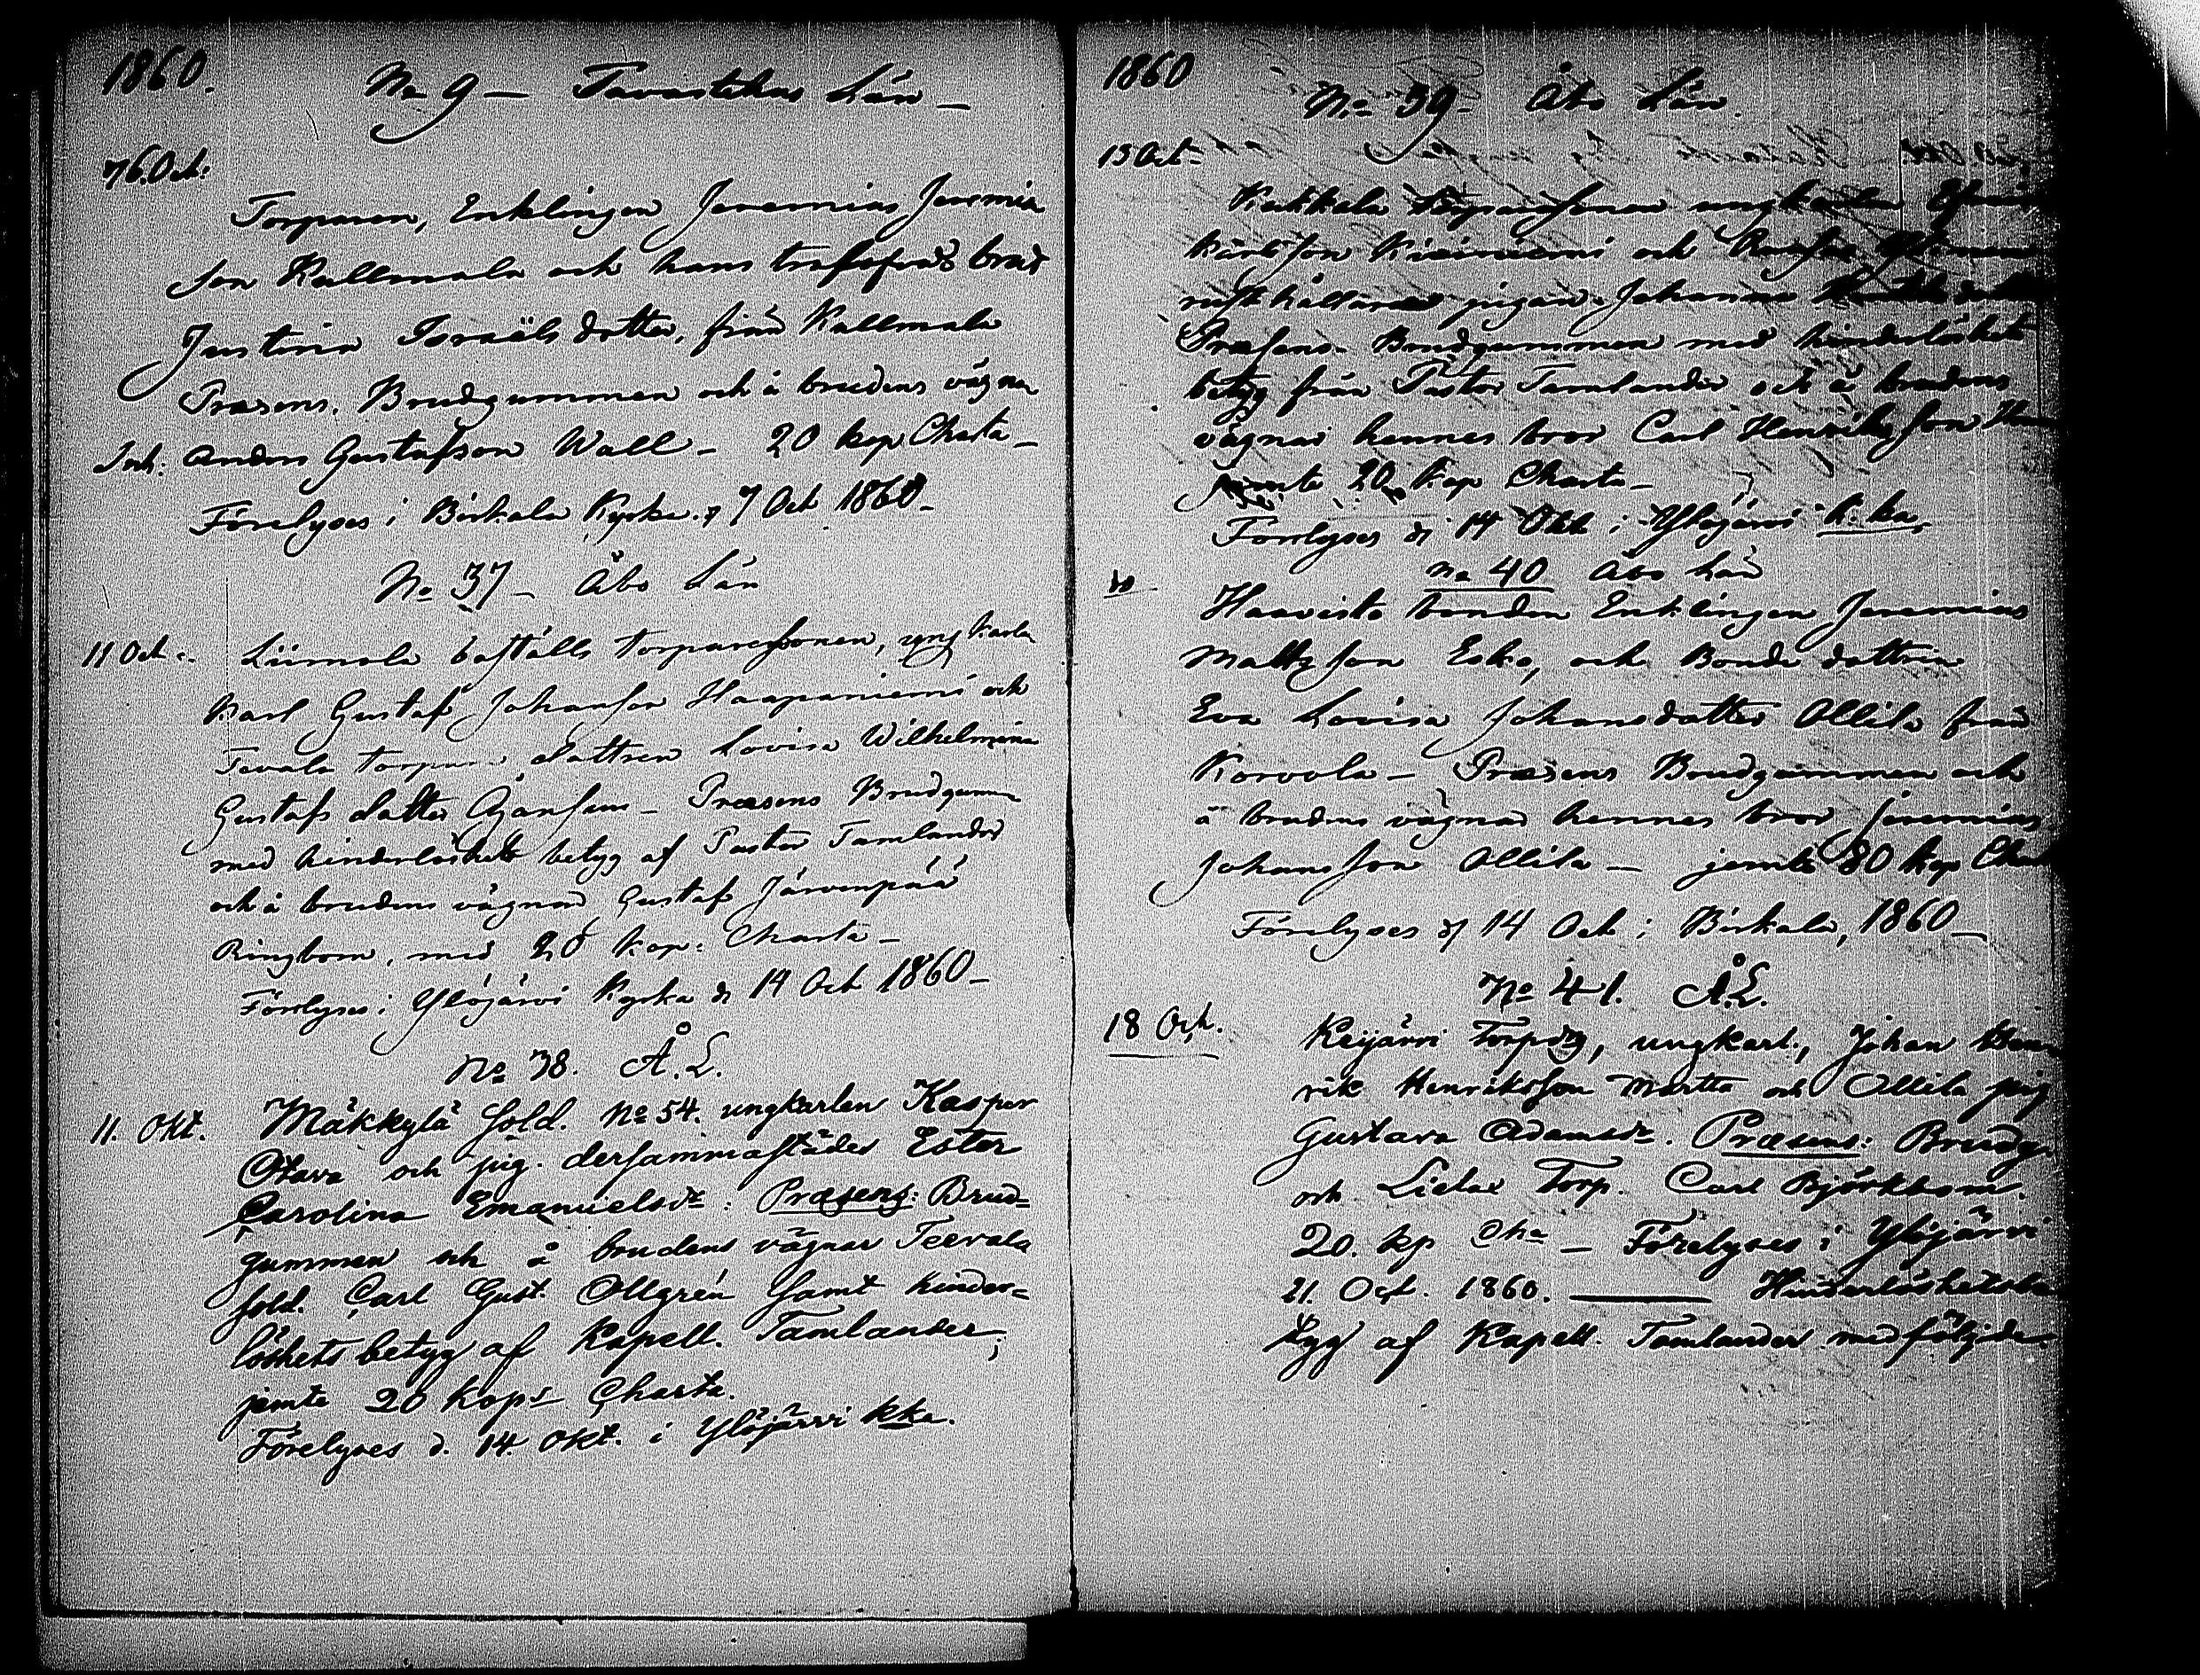 1860.
No 9 — Tavastehus Län —
76. Oct:
Torparen, Enklingen Jeremias Jeremia
son Kallmala och hans brud
Justina Israels dotter, från Kallmala
Præsens. Brudgummen och å brudens vägnar
Anders Gustafsson Wall — 20 kop Charta —
Förelyses i Birkala Kyrka d 7 Oct 1860 —
No 37 — Åbo Län
11 Oct. Liimola boställs torparesonen, ung karln
Karl Gustaf Johansson Haapaniemi och
Tevala torpare dottren Lovisa Wilhelmina
Gustafs dotter — Præsens Brudgumm
med hinderlöshets betyg af Pastor Tamlander
och å brudens vägnar Gustaf Järvenpää
Ringbom, med 20 kop: Charta —
Förelyses i Ylöjärvi Kyrka d 14 Oct 1860 —
No 38. Å.L.
11. Okt. Mäkkylä sold. No 54. ungkarlen Kasper
Otava och pig. dersammastädes Ester
Carolina Emanuelsdr. Præsens: Brud=
gummen och å brudens vägnar Teevala
sold. Carl Gust. Ollgrén samt hinder=
löshets betyg af Kapell. Tamlander;
jemte 20 kops Charta.
Förelyses d. 14. Okt. i Ylöjärvi kka.
1860
No 39 — Åbo Län
13 Oct
Kukkala torparesonen ungkarlen
Karlsson Kiviniemi och
rusthållares pigan Johanna
Præsens. Brudgummen med hinderlöshets
betyg från Pastor Tamlander och å brudens
vägnar hennes bror Carl Henriksson
jemte 20 Kop Charta —
Förelyses d 14 Okt i Ylöjärvi K. ka
No 40 Åbo Län
do Haavisto bonden Enklingen Jeremias
Mattsson Esko, och Bonde dottren
Eva Lovisa Johansdotter Ollila från
Korvola — Præsens Brudgummen och
å brudens vägnar hennes bror Jeremias
Johansson Ollila — jemte 80 kop
Förelyses d 14 Oct i Birkala, 1860 —
No 41. Å.L.
18 Oct. Keijärvi Torp, ungkarl., Johan Hen
rik Henriksson Martta och Ollila pig
Gustava Adamsdr. Præsens: Brudg.
och Torp. Carl Björkbom.
20. kp Cha — Förelyses i Ylöjärvi
21. Oct. 1860. — Hinderlöshetsbe
tyg af Kapell. Tamlander medföljde.